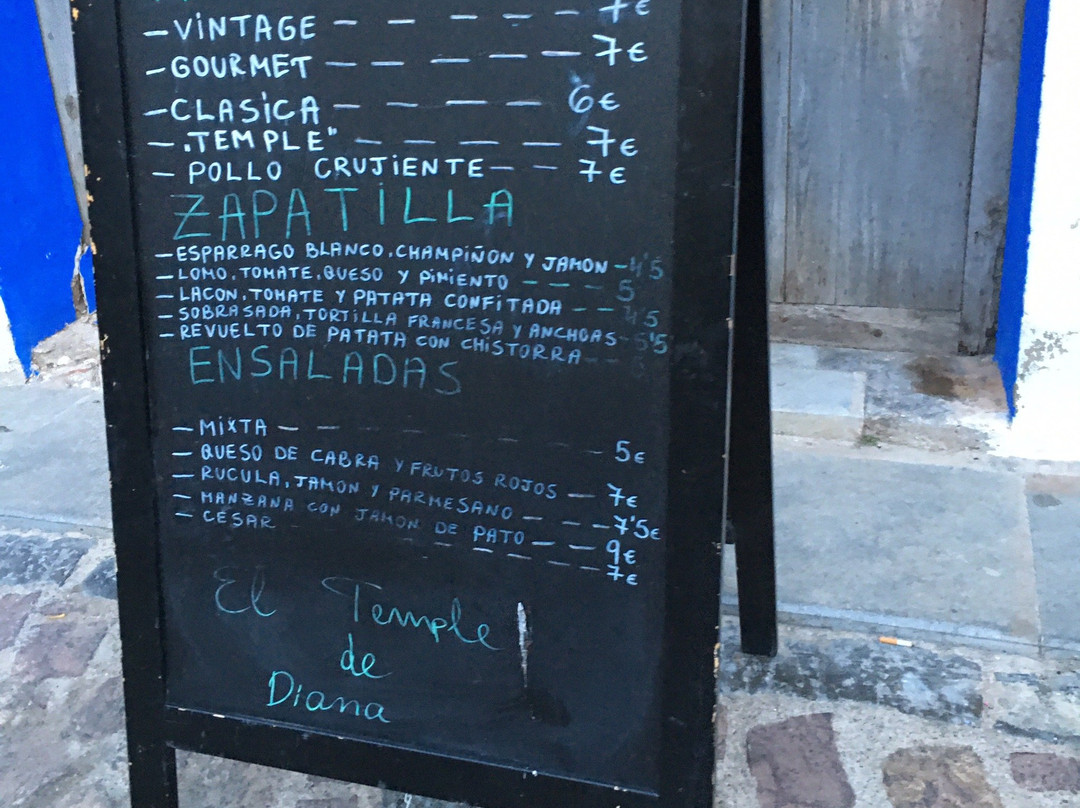 -VINTAGE - - - - - 7€
-GOURMET - - - - - 7€
-CLASICA - - - - 6€
-."TEMPLE" - - - - 7€
- POLLO CRUJIENTE - - 7€
ZAPATILLA
-ESPARRAGO BLANCO, CHAMPIÑON Y JAMON - 4'5
-LOMO, TOMATE, QUESO Y PIMIENTO - - - 5
-LACON, TOMATE Y PATATA CONFITADA - - 4'5
-SOBRASADA, TORTILLA FRANCESA Y ANCHOAS - 5'5
-REVUELTO DE PATATA CON CHISTORRA - -
ENSALADAS
-MIXTA - - - - - - 5€
-QUESO DE CABRA Y FRUTOS ROJOS - 7€
-RUCULA, JAMON Y PARMESANO - - - 7'5€
-MANZANA CON JAMON DE PATO - - 9€
-CESAR - - - - 7€
El Temple
de
Diana